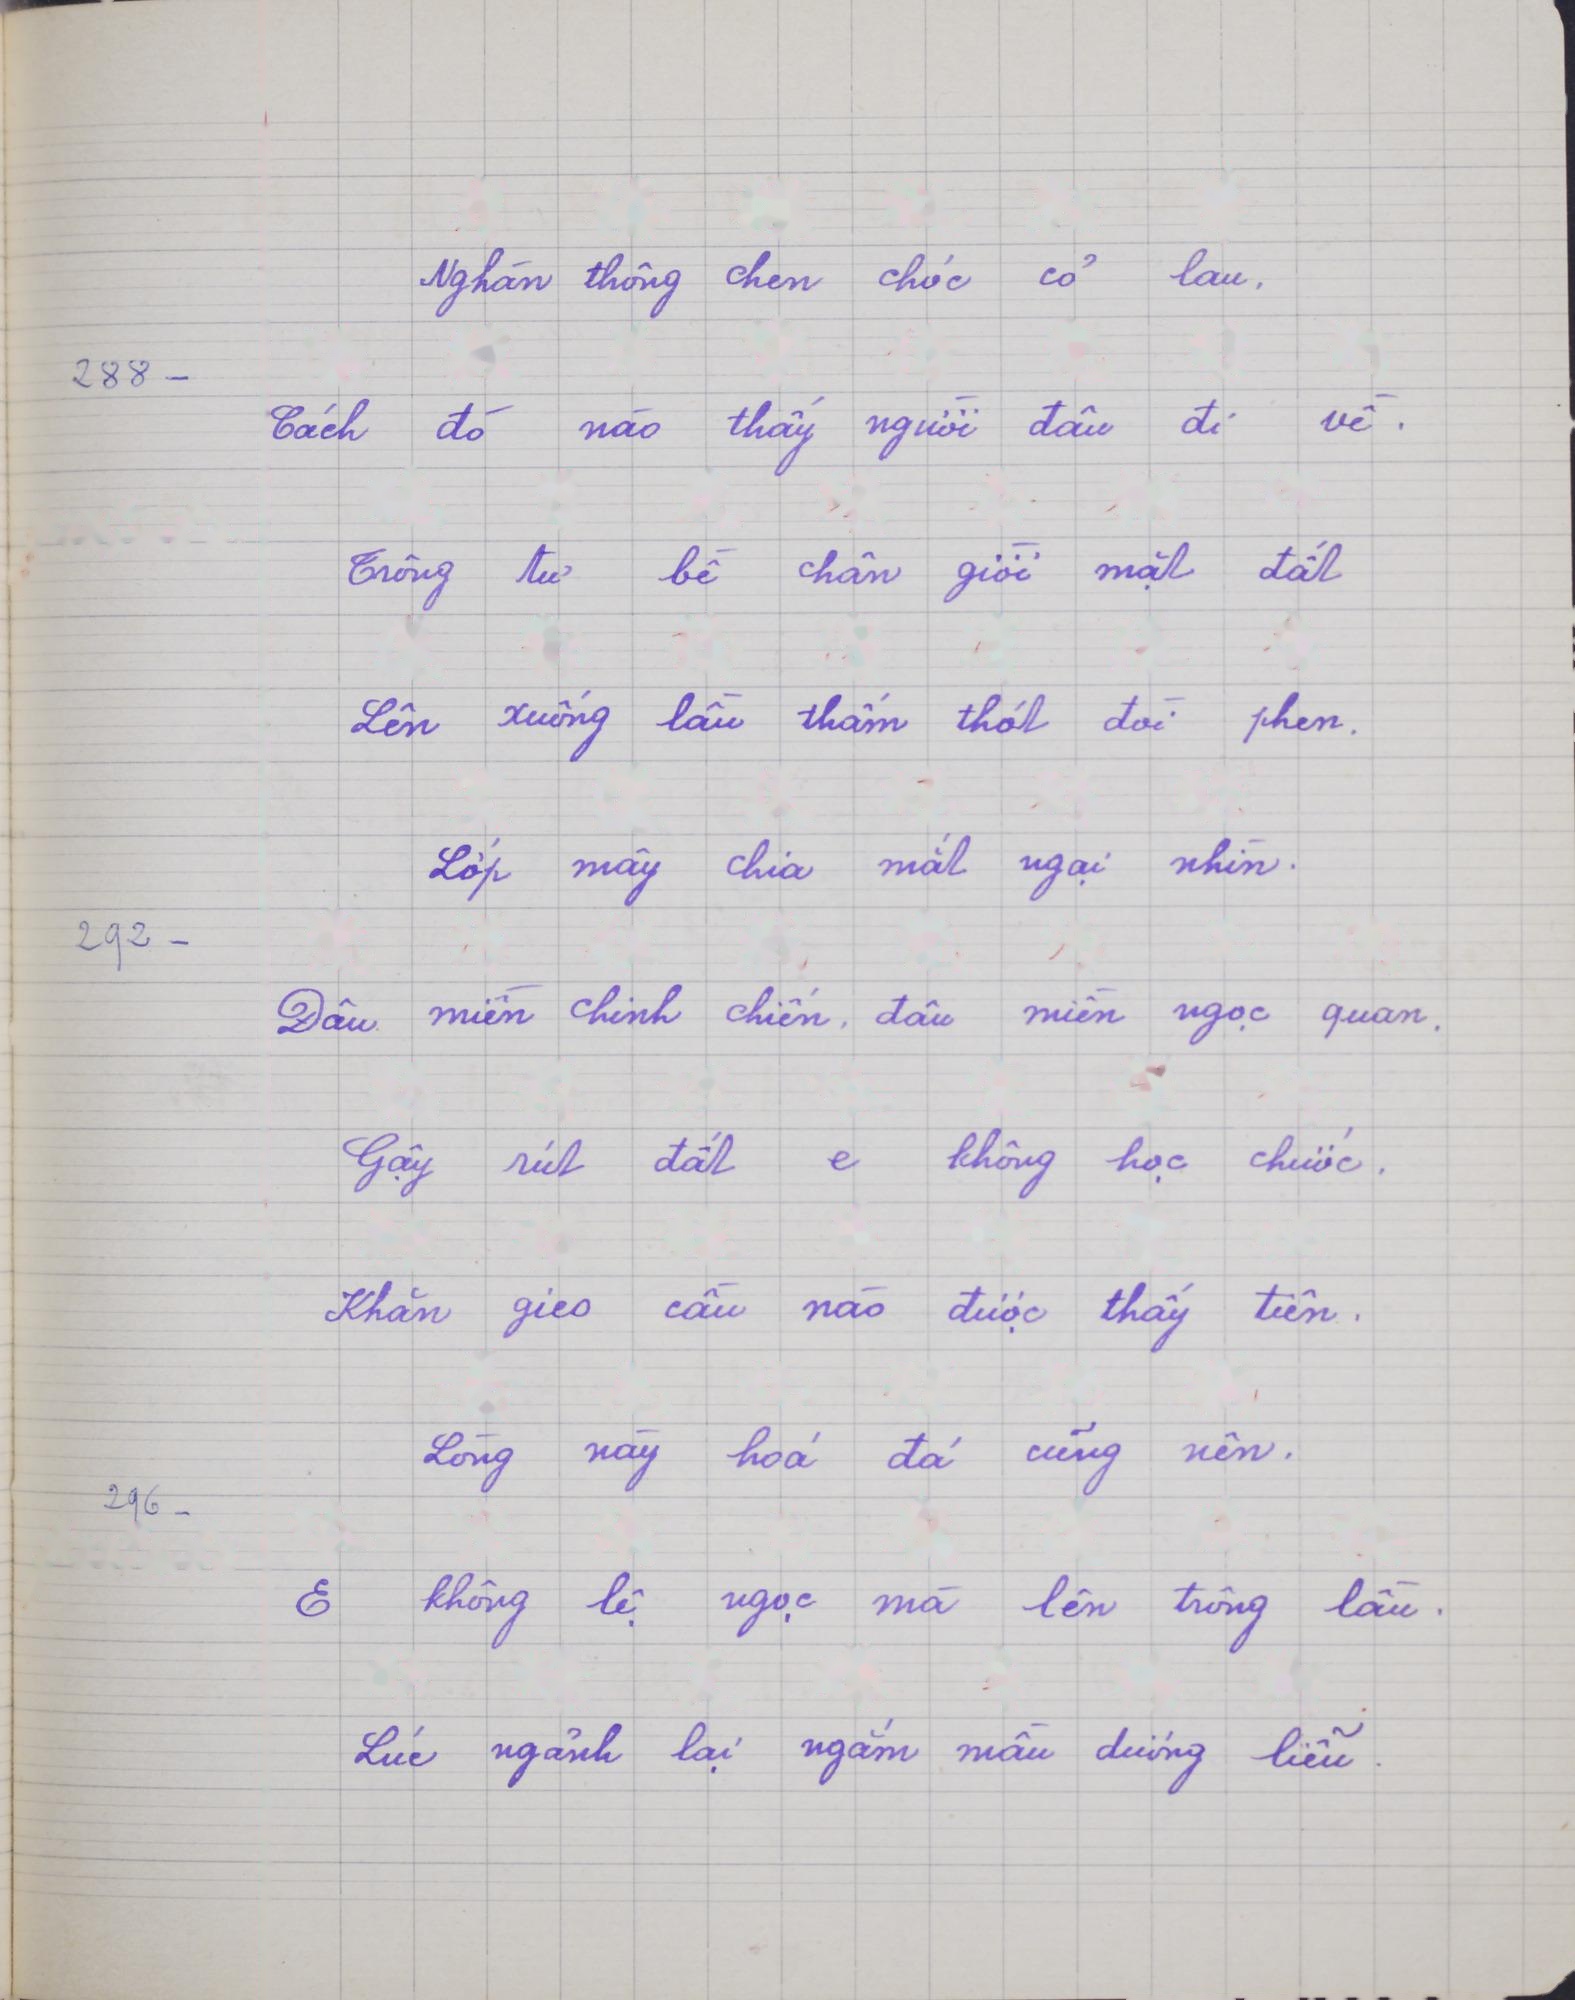 Nghàn thông chen chóc cỏ lau.
288 -
Cách đó nào thấy người đâu đi về.
Trông tư bề chân giời mặt đất
Lên xuống lầu thấm thót đòi phen.
Lớp mây chia mắt ngại nhìn.
292 -
Đâu miền chinh chiến, đâu miền ngọc quan.
Gậy rút đất e không học chước.
Khăn gieo cầu nào được thấy tiên.
Lòng này hoá đá cũng nên.
296 -
E không lệ ngọc mà lên trông lầu.
Lúc ngảnh lại ngắm mầu dương liễu.